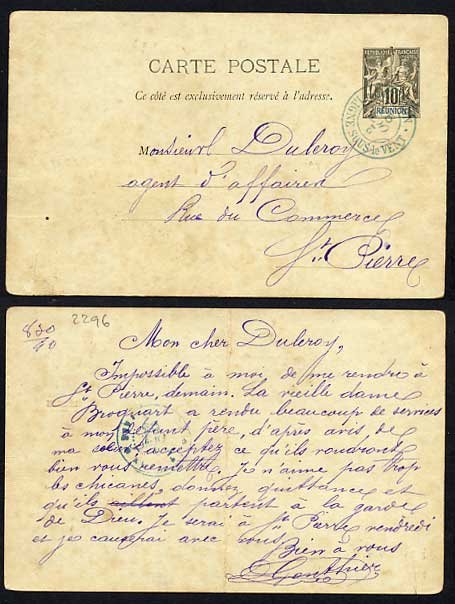 REPUBLIQUE FRANÇAISE
10
RÉUNION
CARTE POSTALE
Ce côté est exclusivement réservé à l'adresse.
LIGNE SOUS-le-VENT
Monsieur Duleroy
agent d'affaires
Rue du Commerce
St. Pierre
2296
820
10
Mon cher Duleroy,
Impossible à moi de me rendre à
St Pierre, demain. La vieille dame
Broquart a rendu beaucoup de services
à mon père, d'après avis de
ma acceptez ce qu'ils voudront
bien vous remettre, je n'aime pas trop
les chicanes, donnez quittance et
qu'ils aillent partent à la garde
de Dieu. Je serai à St Pierre vendredi
et je causerai avec vous
Bien à vous